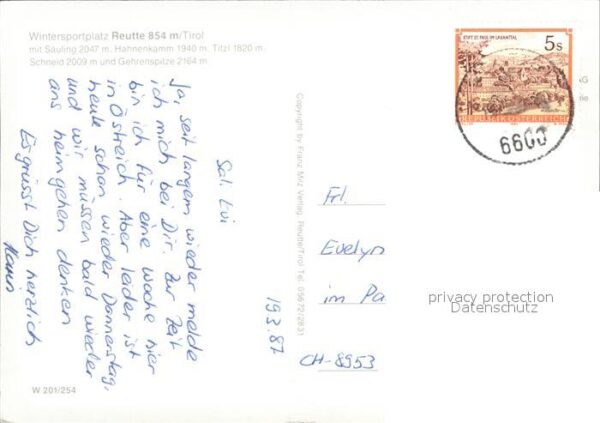 Wintersportplatz Reutte 854 m/Tirol
mit Säuling 2047 m, Hahnenkamm 1940 m, Titzl 1820 m,
Schneid 2009 m und Gehrenspitze 2164 m
Sal. Evi
19.3.87
Ja, seit langem wieder melde
ich mich bei Dir. Zur Zeit
bin ich für eine Woche hier
in Östreich. Aber leider ist
heute schon wieder Donnerstag,
und wir müssen bald wieder
ans heimgehen denken
Es grüsst Dich herzlich
W 201/254
Copyright by Franz Milz Verlag, Reutte/Tirol Tel. 05672/2831
STIFT ST. PAUL IM LAVANTTAL
5 S
REPUBLIK ÖSTERREICH
6600
Frl.
Evelyn
im Pa
CH-8953
privacy protection
Datenschutz